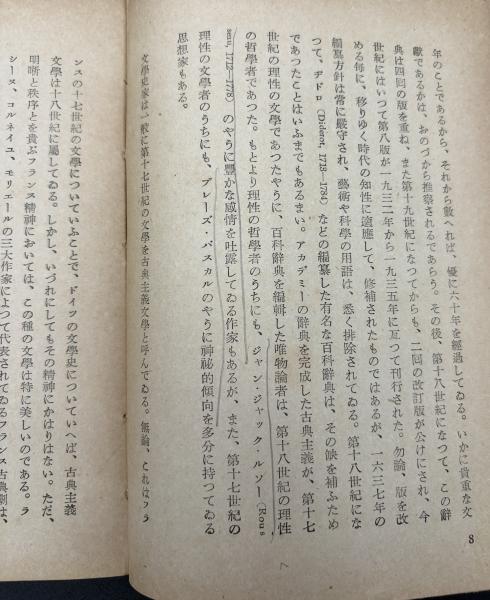 8
年のことであるから、それから數へれば、優に六十年を經過してゐる。いかに貴重な文
獻であるかは、おのづから推察されるであらう。その後、第十八世紀になつて、この辭
典は四囘の版を重ね、また第十九世紀になつてからも、二囘の改訂版が公けにされ、今
世紀にはいつて第八版が一九三二年から一九三五年に亙つて刊行された。勿論、版を改
める每に、移りゆく時代の知性に適應して、修補されたものではあるが、一六三七年の
編纂方針は常に嚴守され、藝術や科學の用語は、悉く排除されてゐる。第十八世紀にな
つて、ヂドロ (Diderot, 1713–1784) などの編纂した有名な百科辭典は、その缺を補ふため
であつたことはいふまでもあるまい。アカデミーの辭典を完成した古典主義が、第十七
世紀の理性の文學であつたやうに、百科辭典を編輯した唯物論者は、第十八世紀の理性
の哲學者であつた。もとより理性の哲學者のうちにも、ジャン・ジャック・ルソー (Rous
seau, 1712–1778) のやうに豐かな感情を吐露してゐる作家もあるが、また、第十七世紀の
理性の文學者のうちにも、ブレーズ・パスカルのやうに神祕的傾向を多分に持つてゐる
思想家もある。
文學史家は一般に第十七世紀の文學を古典主義文學と呼んでゐる。無論、これはフラ
ンスの十七世紀の文學についていふことで、ドイツの文學史についていへば、古典主義
文學は十八世紀に屬してゐる。しかし、いづれにしてもその精神にかはりはない。ただ、
明晰と秩序とを貴ぶフランス精神においては、この種の文學は特に美しいのである。ラ
シーヌ、コルネイユ、モリエールの三大作家によつて代表されてゐるフランス古典劇は、